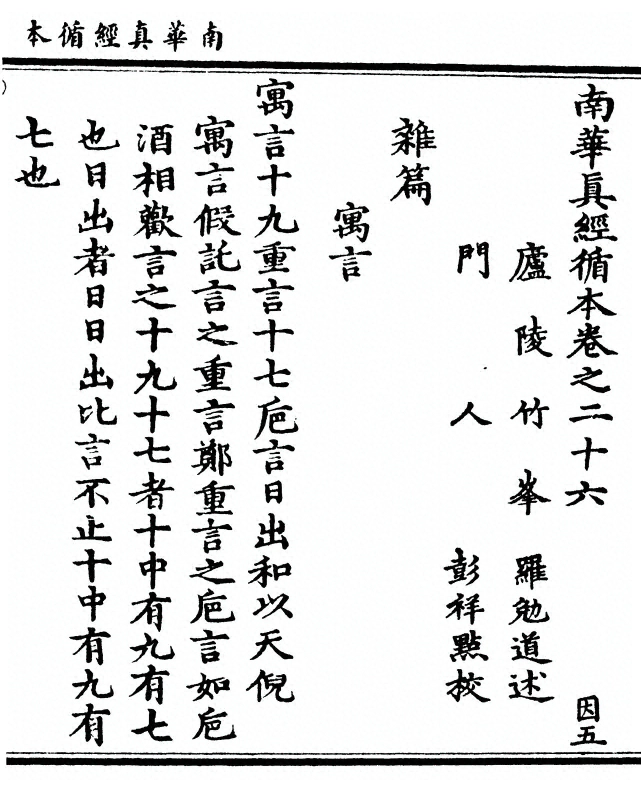 南華真經循本
南華眞經循本卷之二十六 因五
廬陵竹峯羅勉道述
門人彭祥點校
雜篇
寓言
寓言十九重言十七巵言日出和以天倪
寓言假託言之重言鄭重言之巵言如巵
酒相歡言之十九十七者十中有九有七
也日出者日日出比言不止十中有九有
七也